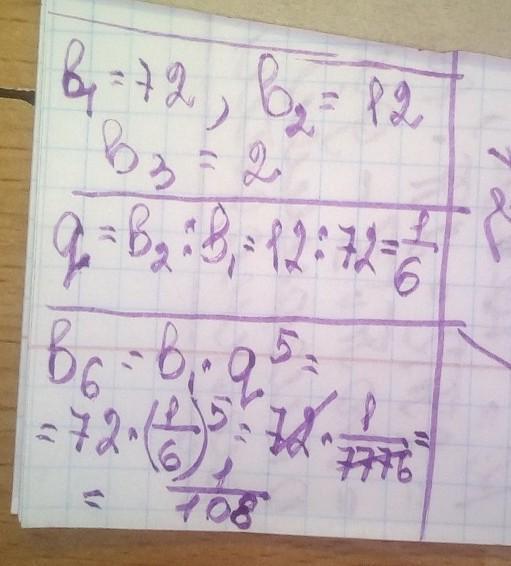 b₁ = 72, b₂ = 12
b₃ = 2
q = b₂ : b₁ = 12 : 72 = 1/6
b₆ = b₁ · q⁵ =
= 72 · (1/6)⁵ = 72 · 1/7776 =
= 1/108